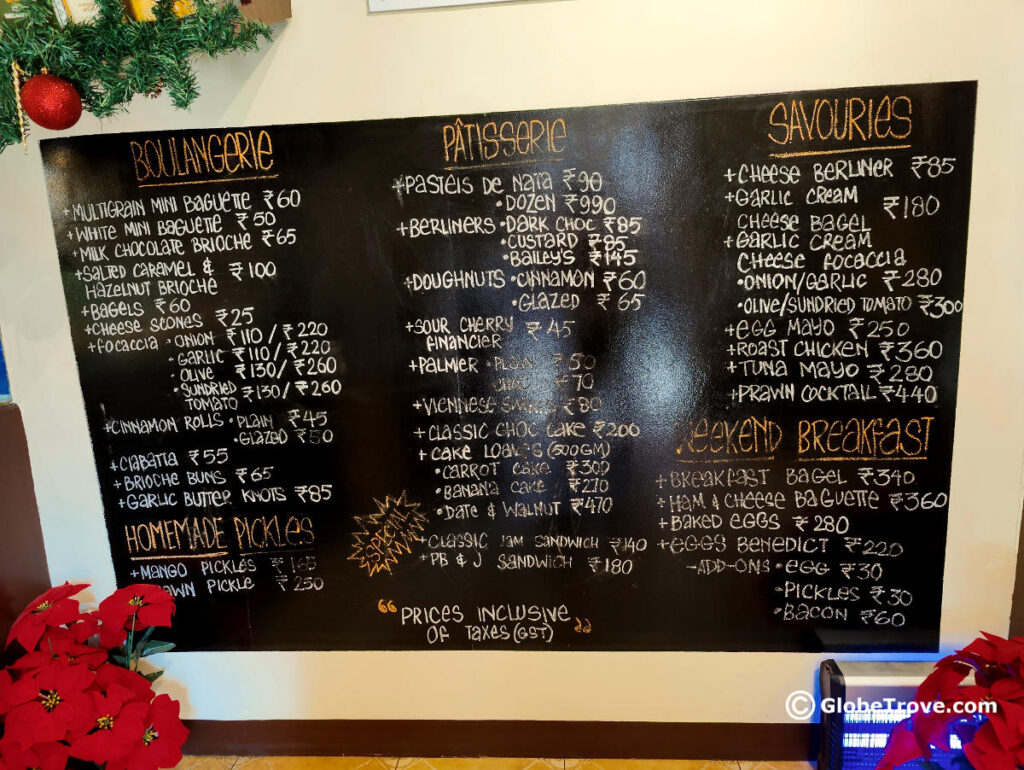 BOULANGERIE
+MULTIGRAIN MINI BAGUETTE ₹60
+WHITE MINI BAGUETTE ₹50
+MILK CHOCOLATE BRIOCHE ₹65
+SALTED CARAMEL & ₹100
HAZELNUT BRIOCHE
+BAGELS ₹60
+CHEESE SCONES ₹25
+FOCACCIA •ONION ₹110/₹220
•GARLIC ₹110/₹220
•OLIVE ₹130/₹260
•SUNDRIED ₹130/₹260
TOMATO
+CINNAMON ROLLS •PLAIN ₹45
•GLAZED ₹50
+CIABATTA ₹55
+BRIOCHE BUNS ₹65
+GARLIC BUTTER KNOTS ₹85
HOMEMADE PICKLES
+MANGO PICKLES ₹165
PICKLE ₹230
PÂTISSERIE
+PASTEIS DE NATA ₹90
•DOZEN ₹990
+BERLINERS •DARK CHOC ₹85
•CUSTARD ₹85
•BAILEY'S ₹145
+DOUGHNUTS •CINNAMON ₹60
•GLAZED ₹65
+SOUR CHERRY ₹45
FINANCIER
+PALMIER •PLAIN ₹50
₹70
+VIENNESE ₹80
+CLASSIC CHOC CAKE ₹200
+CAKE LOAVES (500GM)
•CARROT CAKE ₹300
•BANANA CAKE ₹270
•DATE & WALNUT ₹470
SPECIAL
+CLASSIC JAM SANDWICH ₹140
+PB & J SANDWICH ₹180
"PRICES INCLUSIVE
OF TAXES (GST)"
SAVOURIES
+CHEESE BERLINER ₹85
+GARLIC CREAM ₹180
CHEESE BAGEL
+GARLIC CREAM
CHEESE FOCACCIA
•ONION/GARLIC ₹280
•OLIVE/SUNDRIED TOMATO ₹300
+EGG MAYO ₹250
+ROAST CHICKEN ₹360
+TUNA MAYO ₹280
+PRAWN COCKTAIL ₹440
WEEKEND BREAKFAST
+BREAKFAST BAGEL ₹340
+HAM & CHEESE BAGUETTE ₹360
+BAKED EGGS ₹280
+EGGS BENEDICT ₹220
-ADD-ONS •EGG ₹30
•PICKLES ₹30
•BACON ₹60
© GLOBETROVE.COM